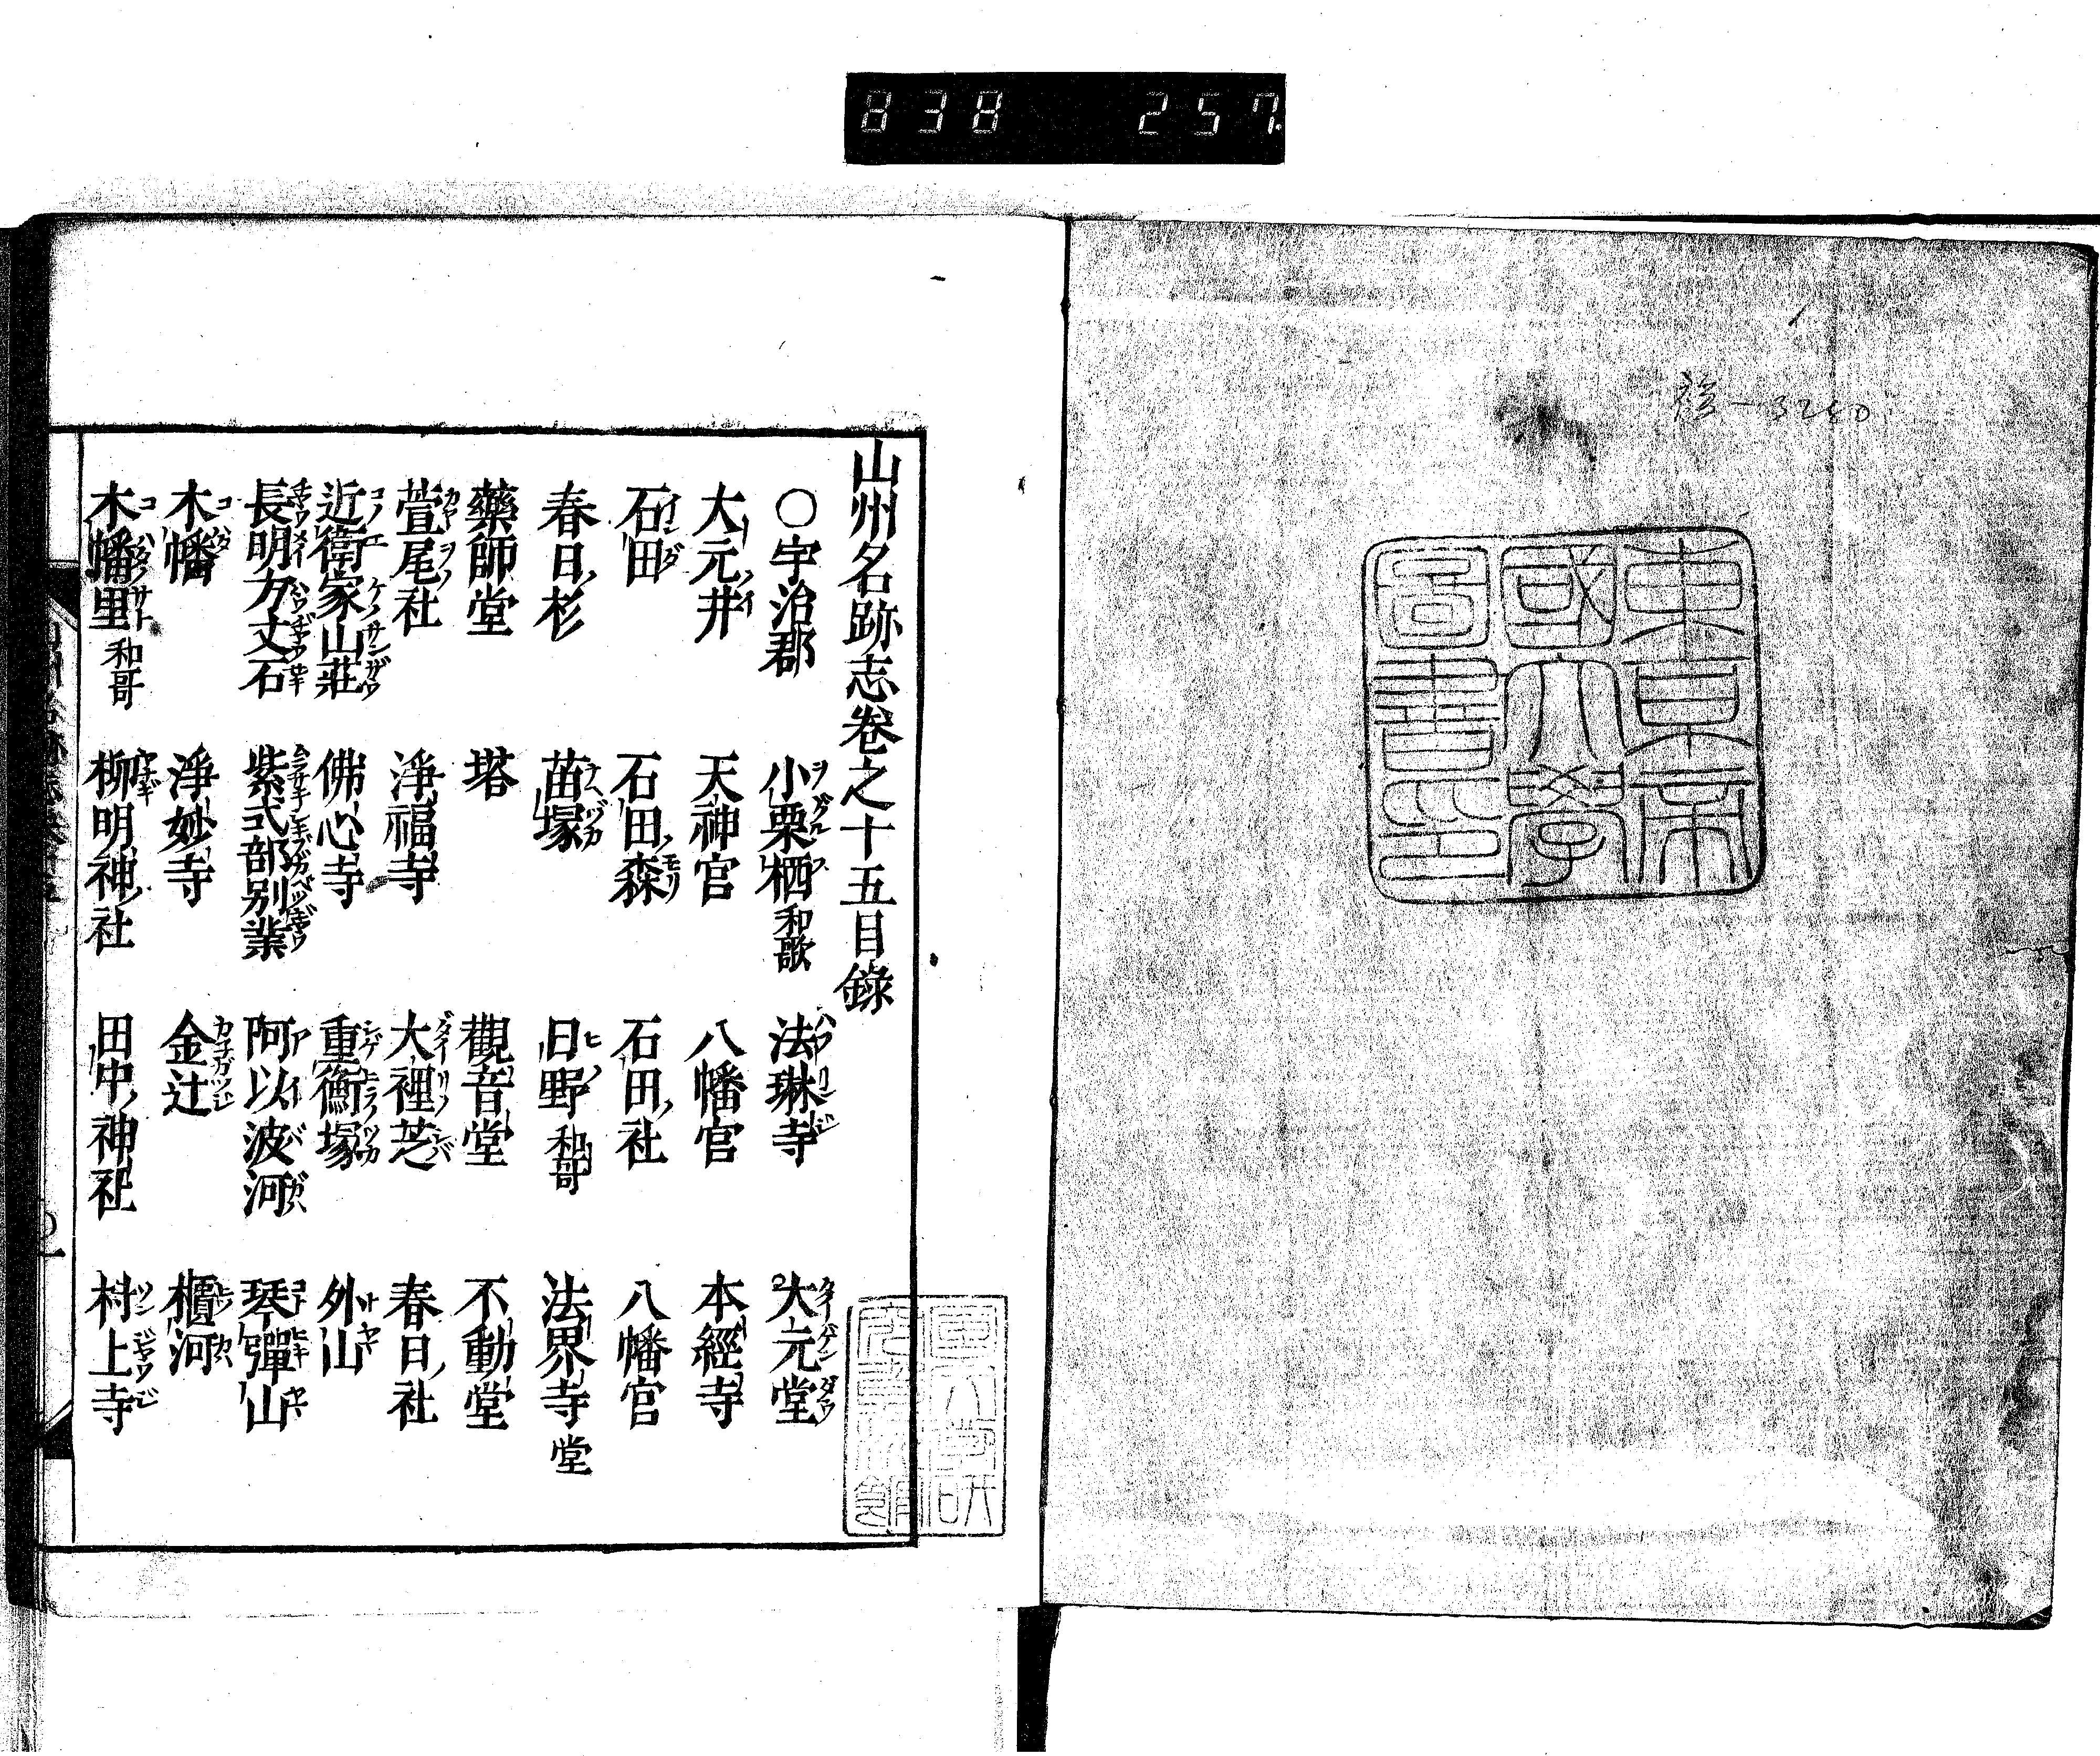 838 257
東京帝
國大學
圖書印
山州名跡志卷之十五目錄
○宇治郡 小栗栖和歌 法琳寺 大元堂
大元井 天神宮 八幡宮 本經寺
石田 石田ノ森 石田ノ社 八幡宮
春日ノ杉 苗塚 日野和哥 法界寺堂
藥師堂 塔 觀音堂 不動堂
萱尾社 淨福寺 大裡芝 春日ノ社
近衞家山莊 佛心寺 重衡塚 外山
長明方丈石 紫式部別業 阿以波河 琴彈山
木幡 淨妙寺 金辻 櫃河
木幡里和哥 柳明神ノ社 田中ノ神社 村上寺